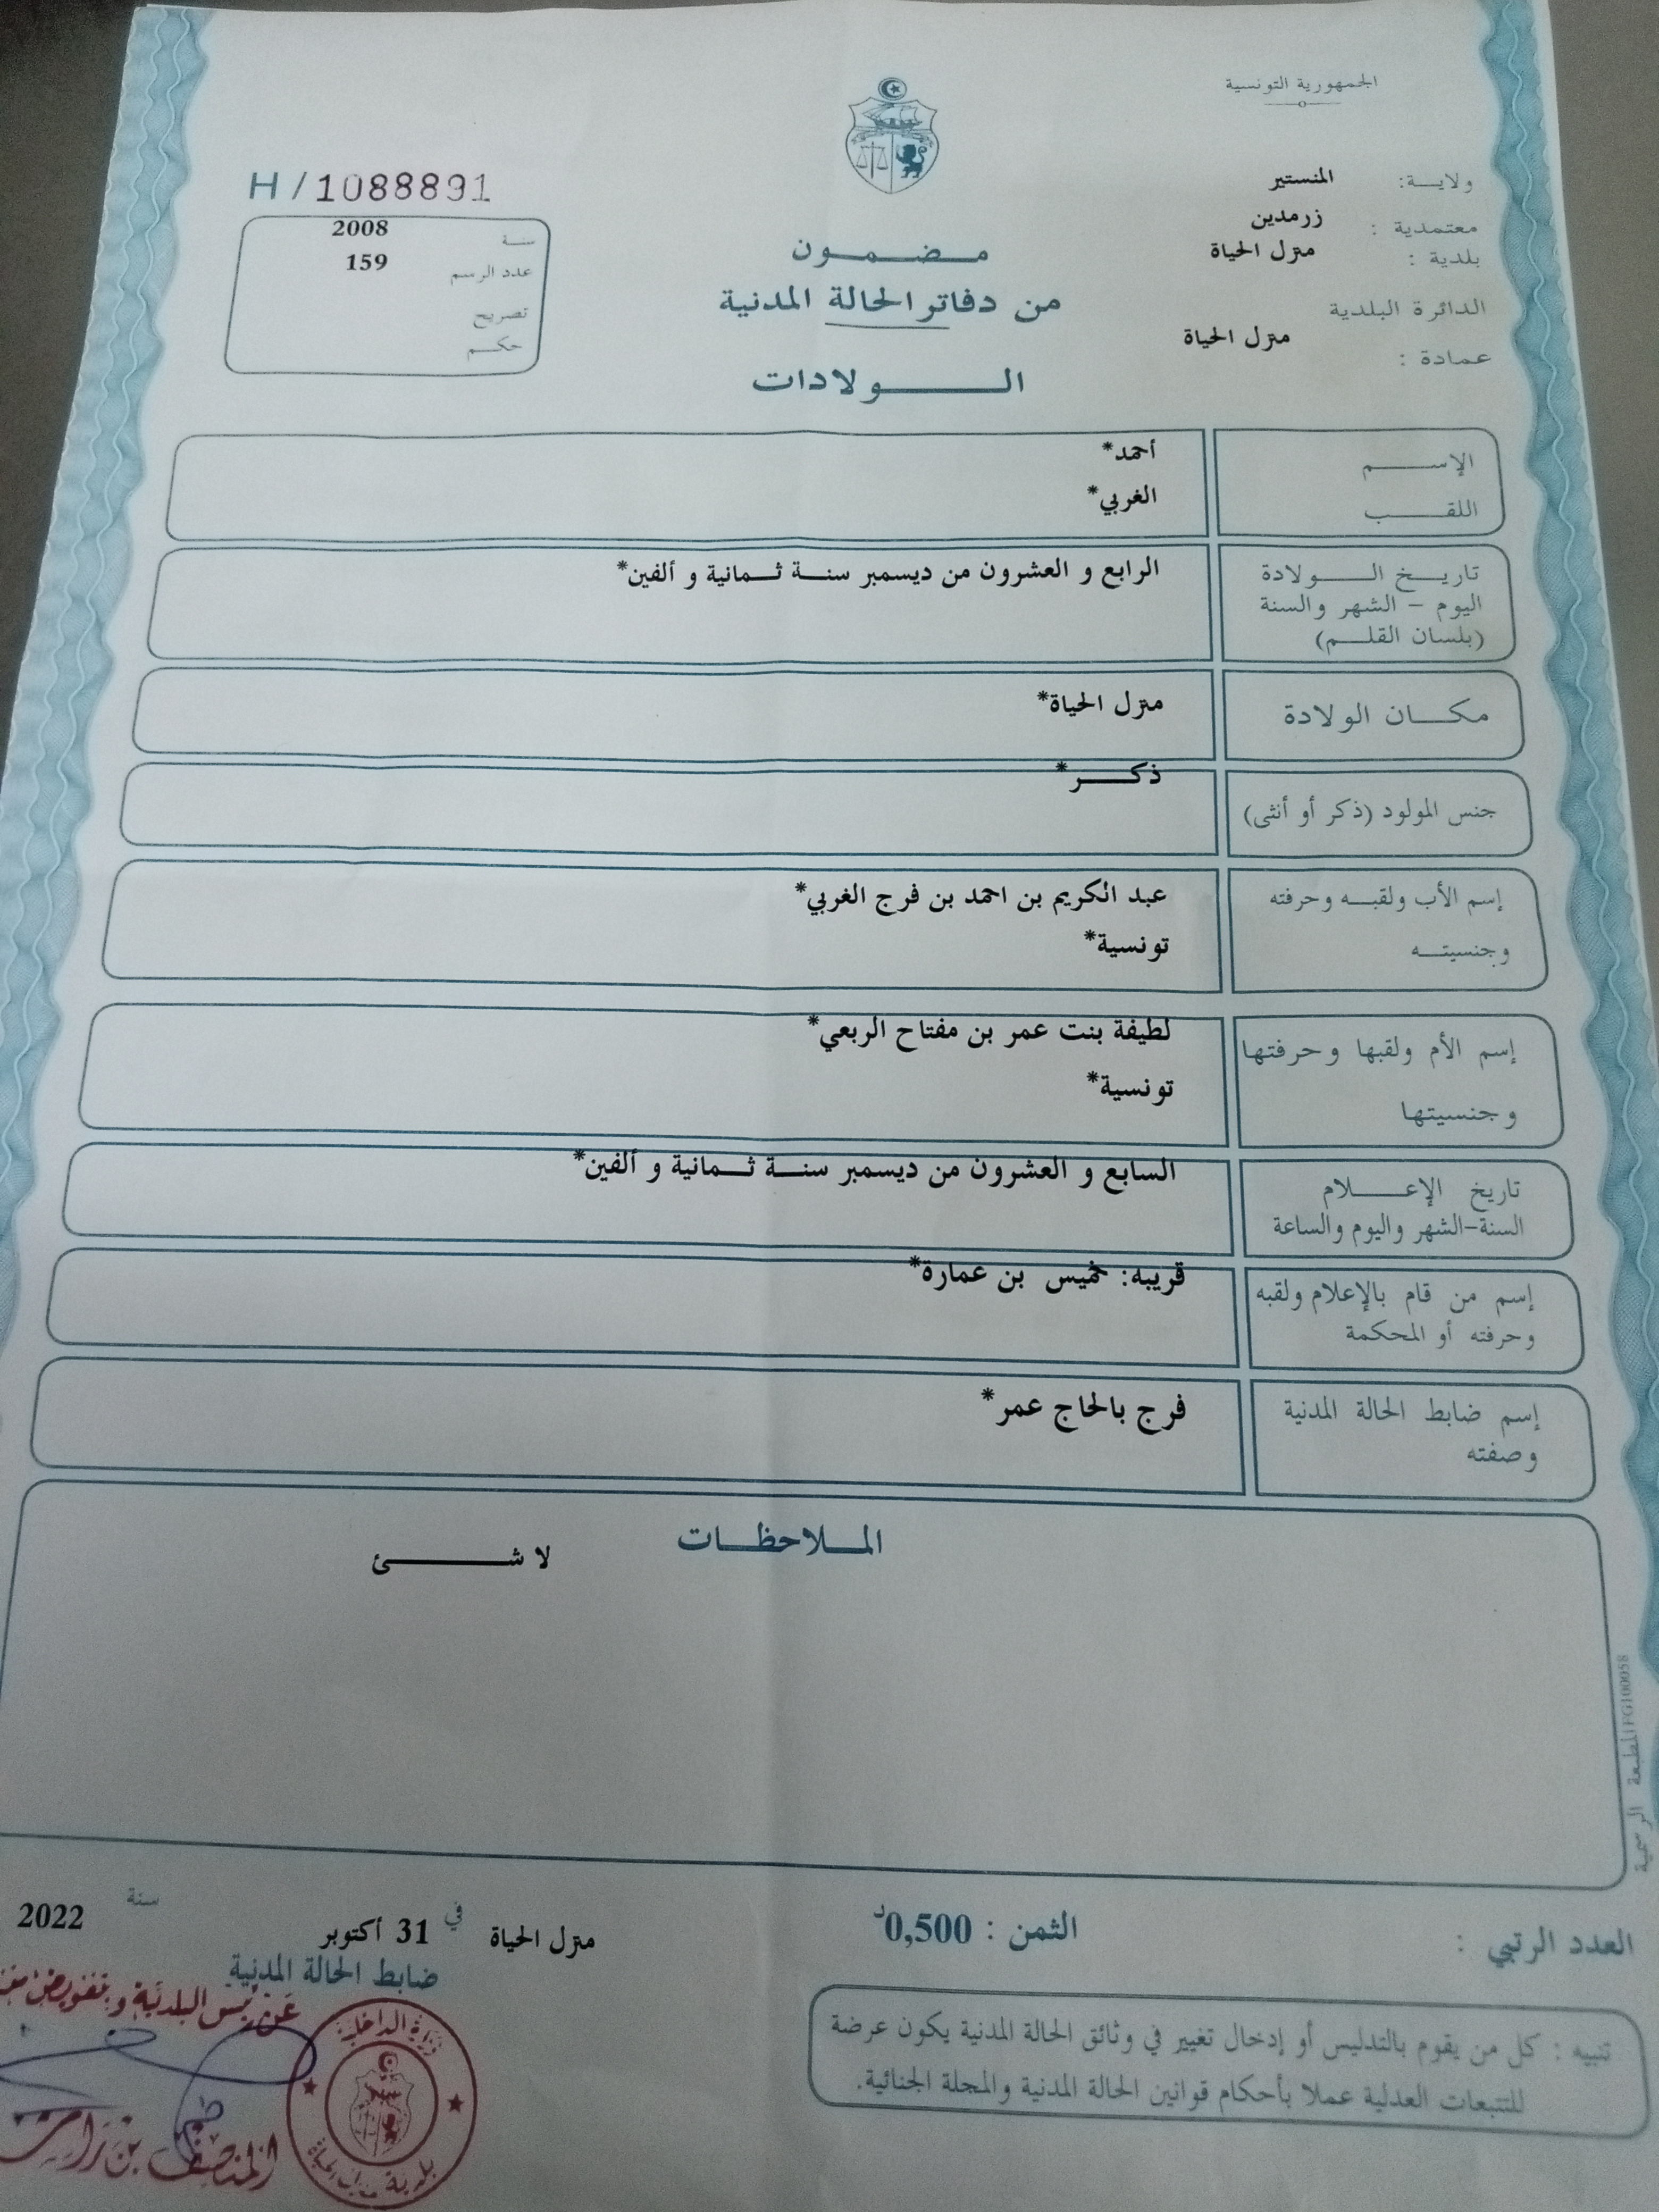 الجمهورية التونسية
ولايـــة: المنستير
معتمدية : زرمدين
بلدية : منزل الحياة
الدائرة البلدية
عمادة : منزل الحياة
H / 1088891
سنـة 2008
عدد الرسم 159
تصريح
حكـم
مـضـمـون
من دفاتر الحالة المدنية
الـولادات
الإســـم أحمد*
اللقـــب الغربي*
تاريـخ الـــولادة
اليوم - الشهر والسنة
(بلسان القلـم)
الرابع و العشرون من ديسمبر سنـة ثـمانية و ألفين*
مكـان الولادة منزل الحياة*
جنس المولود (ذكر أو أنثى) ذكـــر*
إسم الأب ولقبـه وحرفته
وجنسيتـه
عبد الكريم بن احمد بن فرج الغربي*
تونسية*
إسم الأم ولقبها وحرفتها
وجنسيتها
لطيفة بنت عمر بن مفتاح الربعي*
تونسية*
تاريخ الإعـــلام
السنة-الشهر واليوم والساعة
السابع و العشرون من ديسمبر سنـة ثـمانية و ألفين*
إسم من قام بالإعلام ولقبه
وحرفته أو المحكمة
قريبه: خميس بن عمارة*
إسم ضابط الحالة المدنية
وصفته
فرج بالحاج عمر*
المـلاحظـات
لا شـــــئ
المطبعة الرسمية FG100058
العدد الرتبي :
الثمن : 0,500د
منزل الحياة في 31 أكتوبر سنة 2022
ضابط الحالة المدنية
عن رئيس البلدية و بتفويض منه
وزارة الداخلية
بلدية منزل الحياة
المنصف بن
تنبيه : كل من يقوم بالتدليس أو إدخال تغيير في وثائق الحالة المدنية يكون عرضة
للتتبعات العدلية عملا بأحكام قوانين الحالة المدنية والمجلة الجنائية.